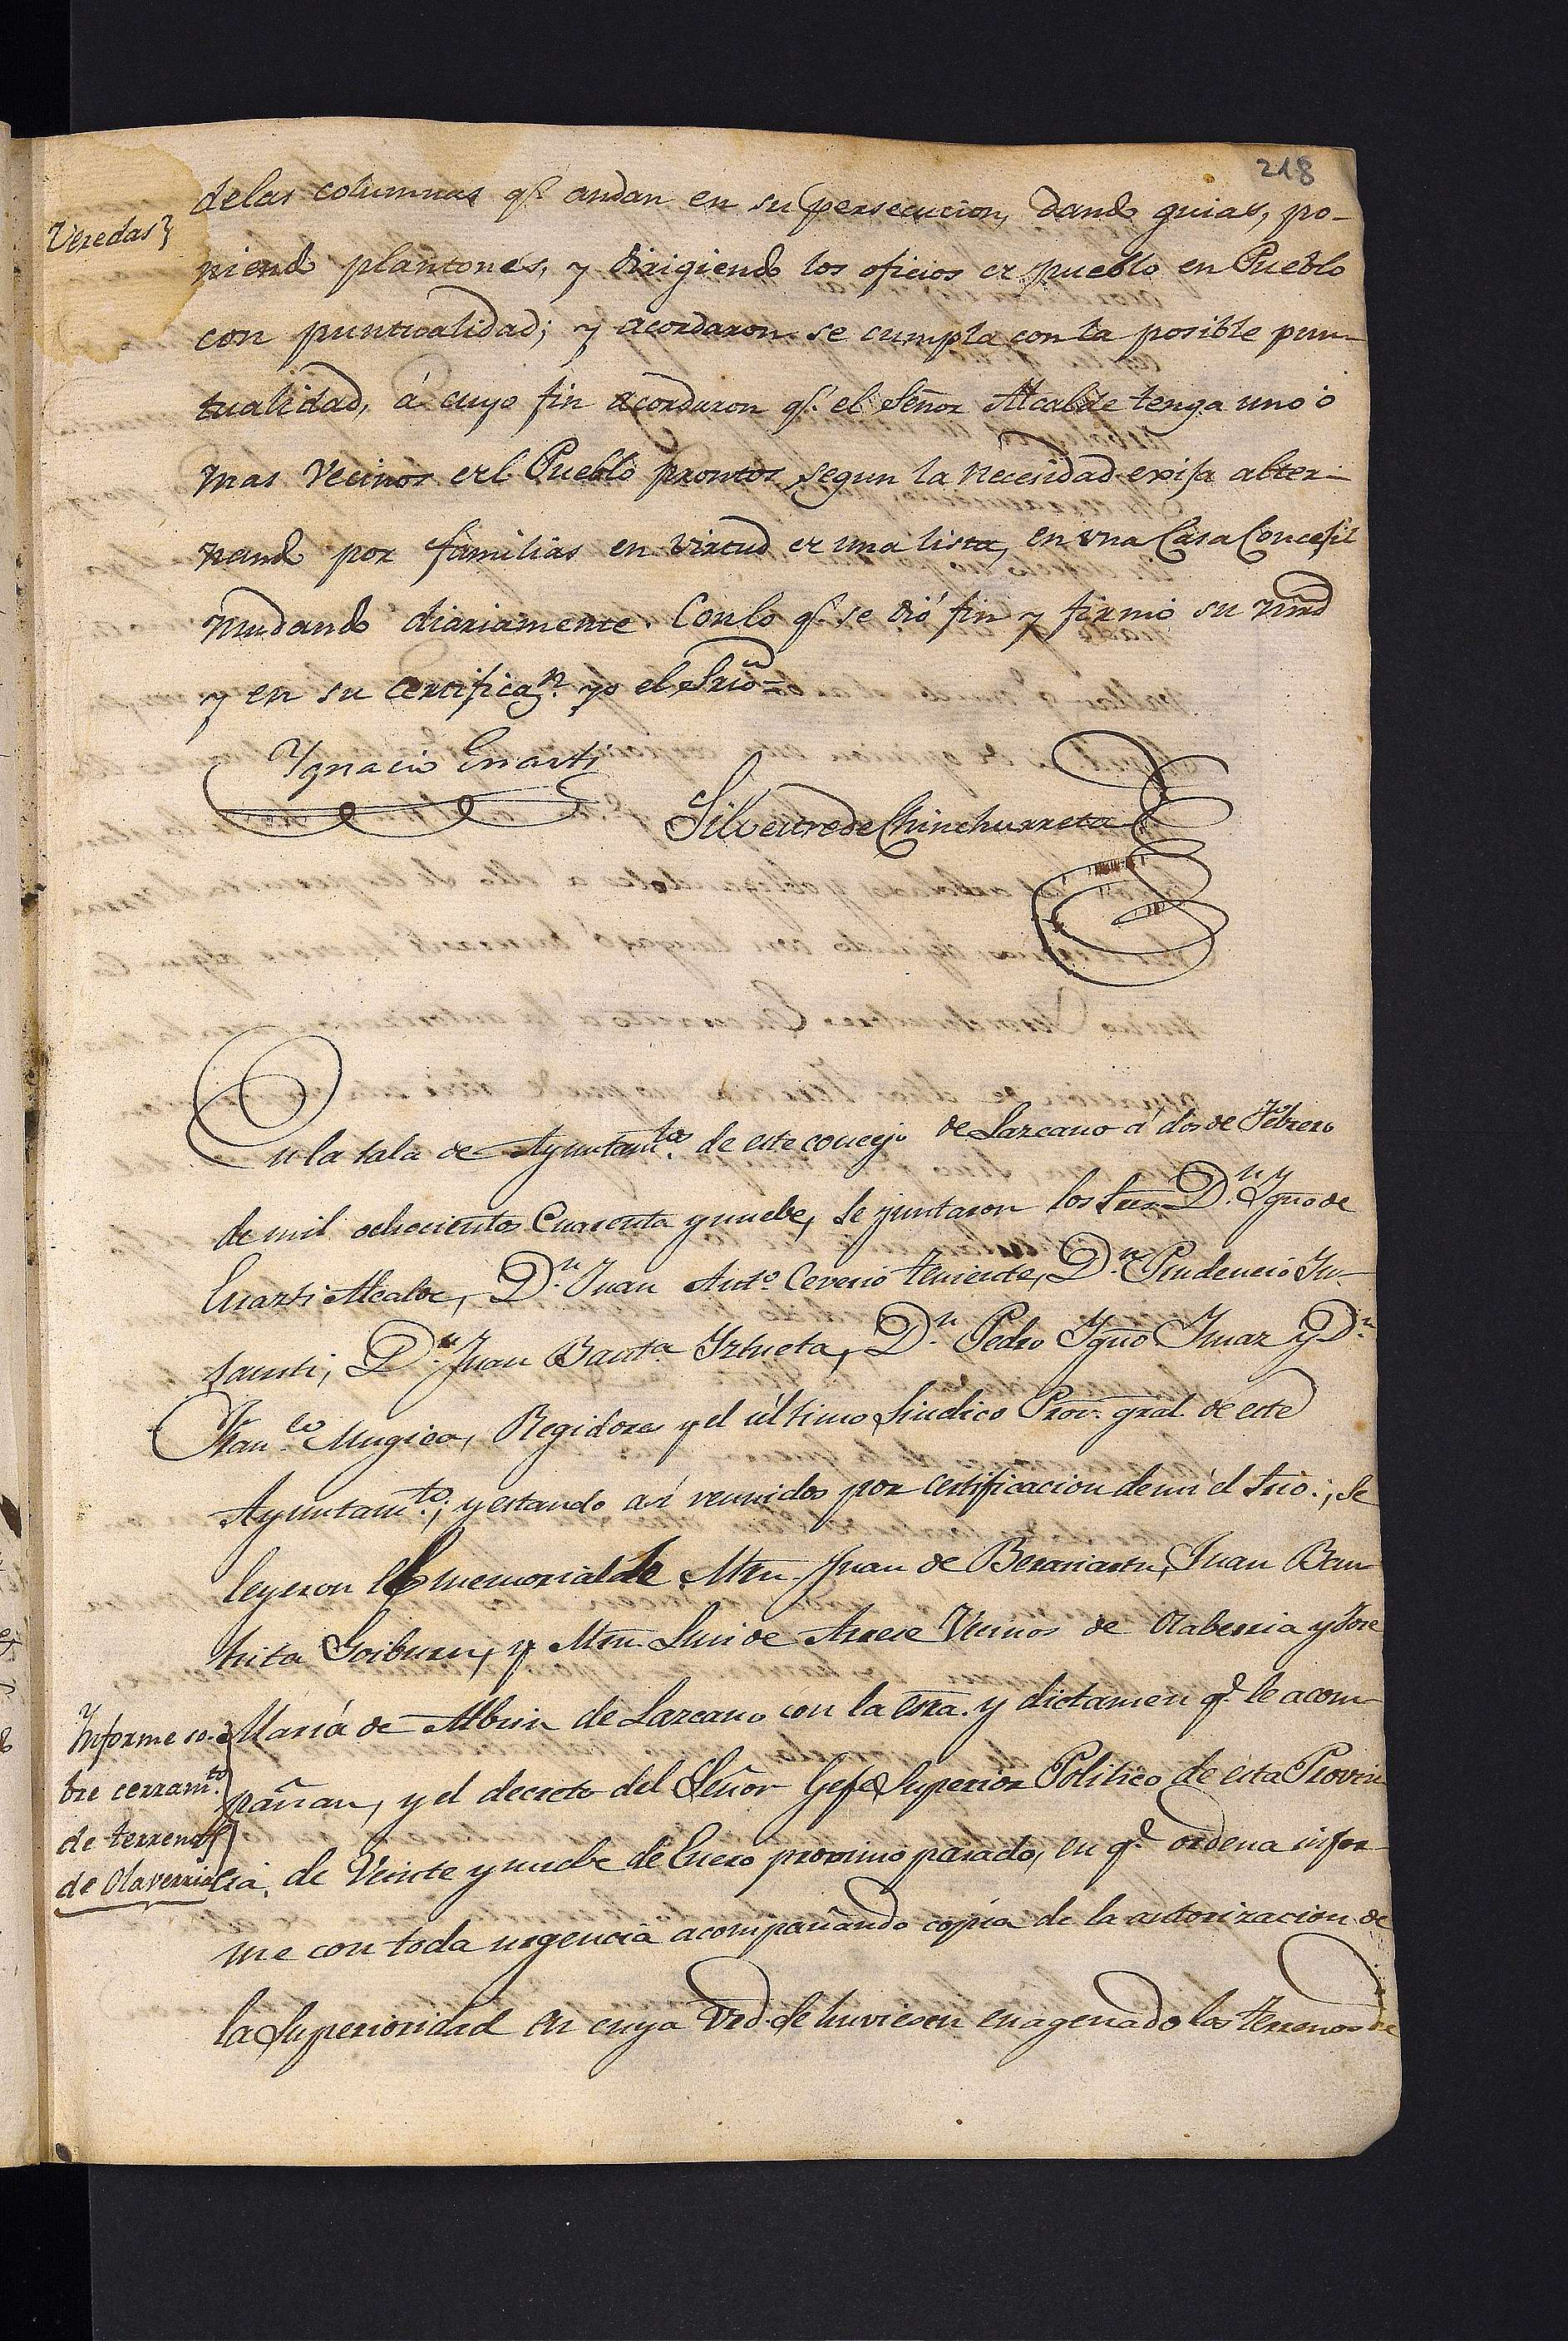 218
Veredas}
delas columnas q.e andan en su persecucion, dando guias, po-
niendo plantones, y dirigiendo los oficios de pueblo en Pueblo
con puntualidad; y acordaron se cumpla con la posible pun-
tualidad, á cuyo fin acordaron q.e el Señor Alcalde tenga uno ó
mas Vecinos del Pueblo prontos segun la necesidad exija alter-
nando por familias en virtud de una lista, en una Casa Concejil
mudando diariamente. Conlo q.e se dió fin y firmó su mrd
y en su certificaz.n yo el Srio=
Ygnacio Enarti
Silvestre de Chinchurreta
En la sala de Ayuntam.tos de este concejo de Lazcano á dos de Febrero
de mil ochocientos cuarenta y nuebe, se juntaron los Sres. D.n Ygno de
Enarti Alcalde, D.n Juan Ant.o Ceverio teniente, D.n Prudencio In-
sausti, D.n Juan Baut.a Iztueta, D.n Pedro Ygno Imaz y D.n
Fran.co Mugica, Regidores y el último Sindico Proc.r gral de este
Ayuntam.to; y estando asi reunidos por certificacion de mi el Srio.; se
leyeron el memorial de Mrn. Juan de Berasiartu, Juan Bau-
tista Goiburu, y Mrn. Luis de Arrese Vecinos de Olaberria y José
María de Albisu de Lazcano con la esra. y dictamen q.e le acom-
pañan, y el decreto del Señor Gefe Superior Politico de esta Provin-
cia, de Veinte y nuebe de Enero proximo pasado, en q.e ordena infor-
me con toda urgencia acompañando copia de la autorizacion de
la Superioridad en cuya Vrd. se huviesen enagenado los terrenos de
Informe so-
bre cerram.to
de terrenos
de Olaverria